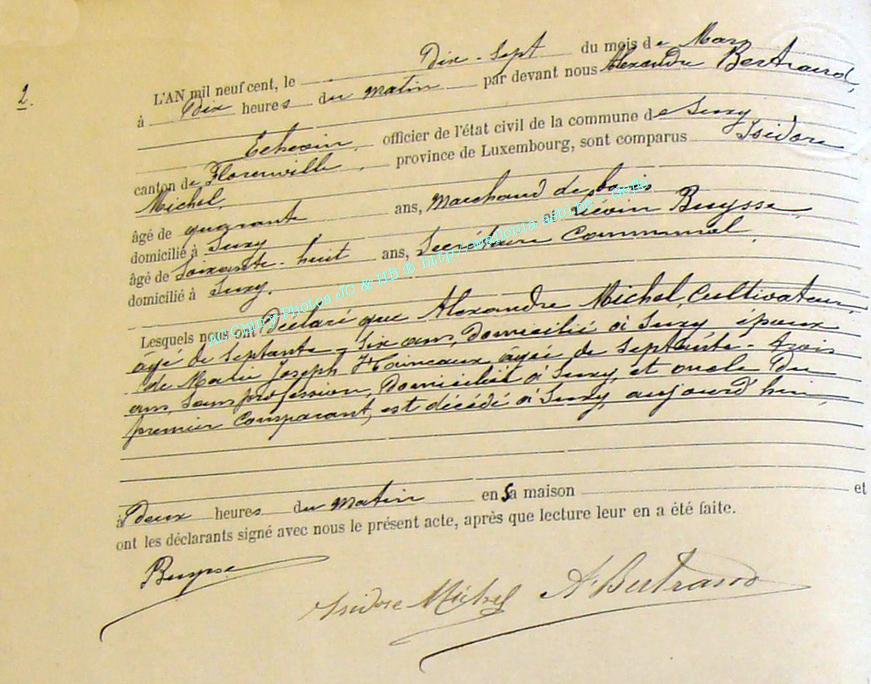 2.
L'AN mil neuf cent, le Dix-Sept du mois de Mars
à Dix heures du matin par devant nous Alexandre Bertrand,
Echevin, officier de l'état civil de la commune de Suxy
canton de Florenville, province de Luxembourg, sont comparus Isidore
Michel,
âgé de quarante ans, marchand de bois
domicilié à Suxy et Liévin Buysse,
âgé de Soixante-huit ans, Secrétaire Communal,
domicilié à Suxy.
Lesquels nous ont Déclaré que Alexandre Michel, Cultivateur,
âgé de Septante-Six ans, Domicilié à Suxy, époux
de Marie Joseph Haineaux, âgée de Septante-trois
ans, Sans profession, Domiciliée à Suxy, et oncle Du
premier Comparant, est décédé à Suxy, aujourd'hui,
à Deux heures du matin en Sa maison et
ont les déclarants signé avec nous le présent acte, après que lecture leur en a été faite.
Buysse
Isidore Michel A. Bertrand